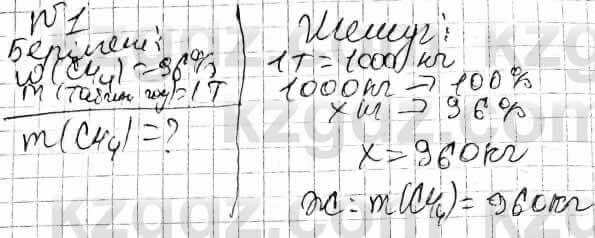 №1
Берілгені:
ω(CH₄)=96%
m(табиғи газ)=1Т
m(CH₄)=?
Шешуі:
1Т=1000кг
1000кг→100%
х кг→96%
х=960кг
ЖС: m(CH₄)=960кг